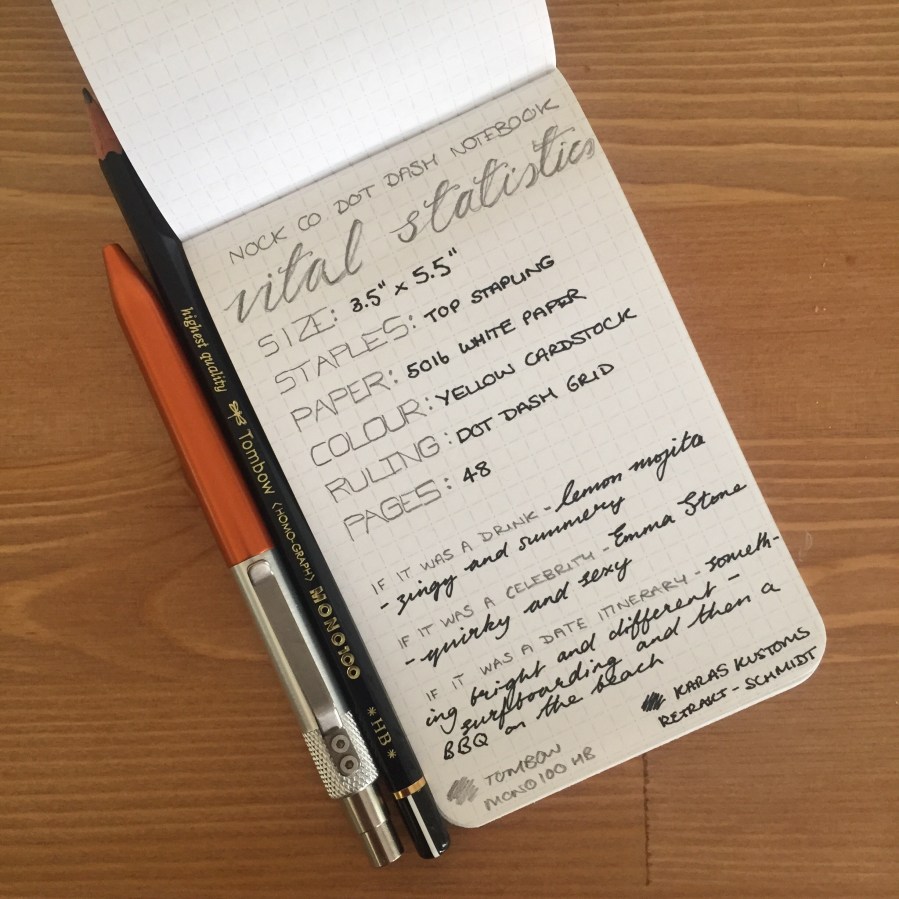 NOCK CO DOT DASH NOTEBOOK
vital statistics
SIZE: 3.5" x 5.5"
STAPLES: TOP STAPLING
PAPER: 50lb WHITE PAPER
COLOUR: YELLOW CARDSTOCK
RULING: DOT DASH GRID
PAGES: 48
IF IT WAS A DRINK - lemon mojita
- zingy and summery
IF IT WAS A CELEBRITY - Emma Stone
- quirky and sexy
IF IT WAS A DATE ITINERARY - someth-
ing bright and different -
surfboarding and then a
BBQ on the beach
KARAS KUSTOMS
RETRAKT - SCHMIDT
TOMBOW
MONO 100 HB
highest quality Tombow <HOMO-GRAPH> MONO100 *HB*